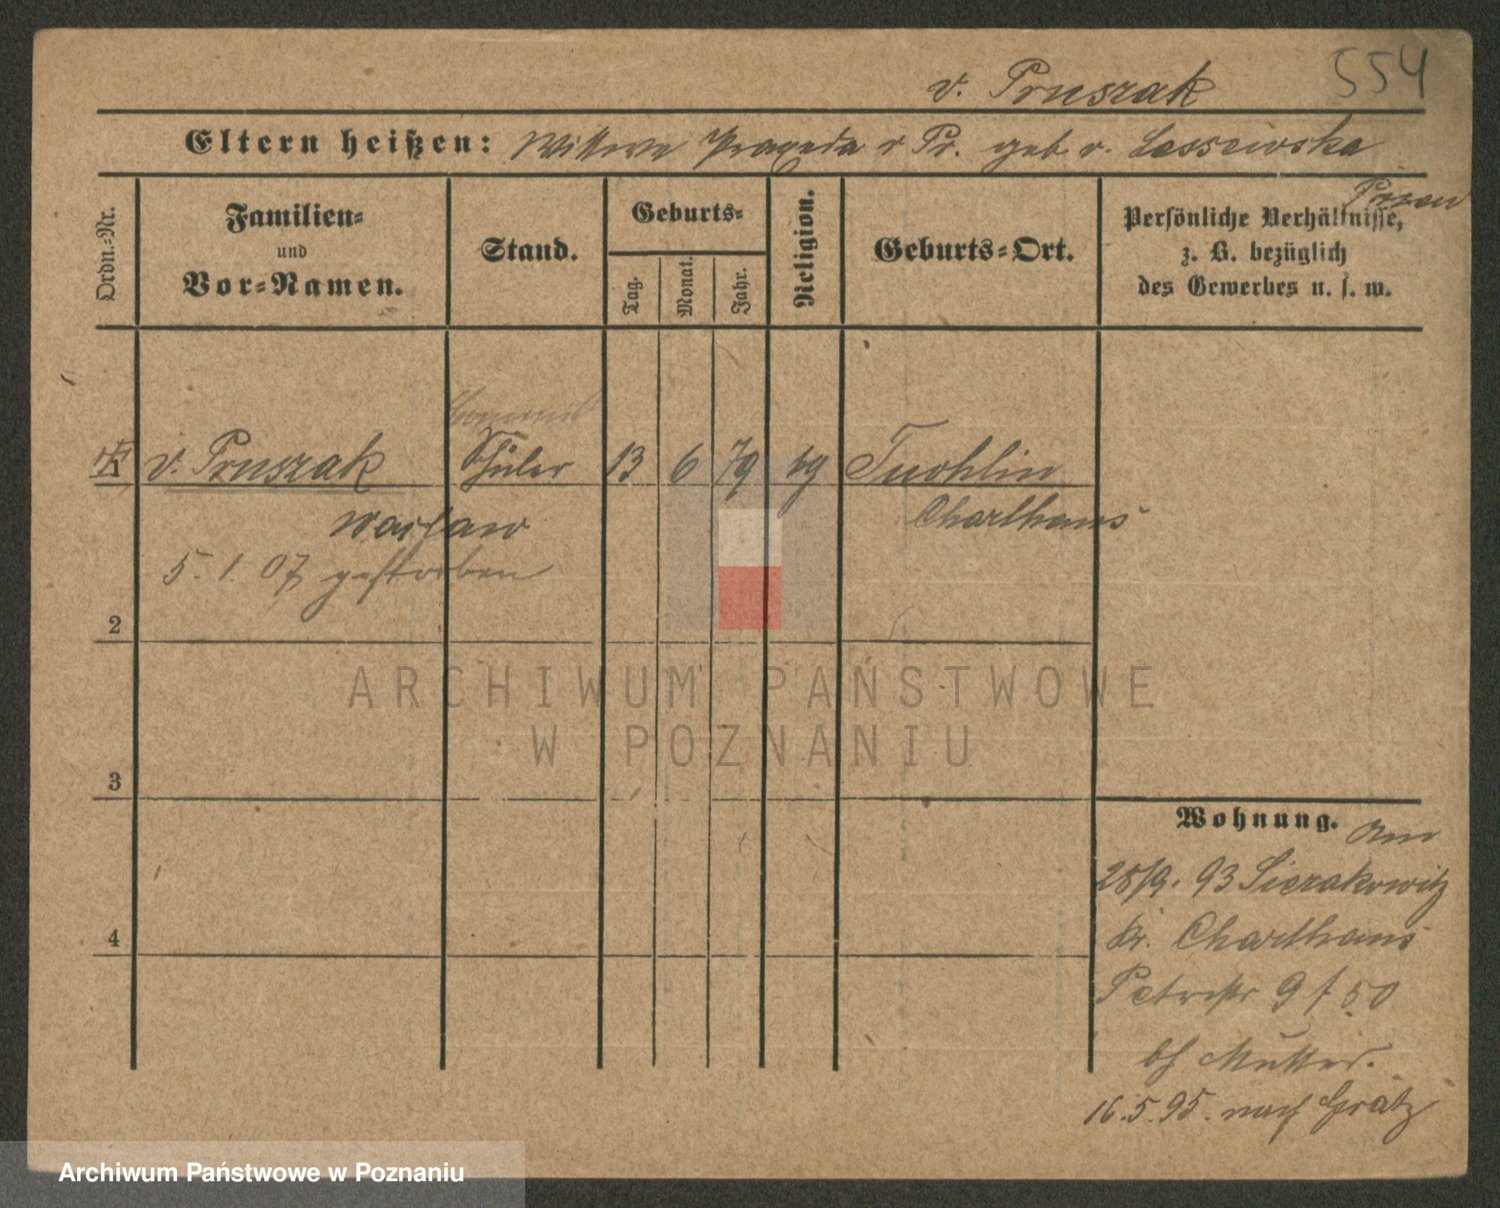 554
v. Pruszak
Eltern heißen: Wittwe Praxeda v Pr. geb v. Lassewska
Posen
Ordn.-Nr.
Familien-
und
Vor-Namen.
Stand.
Geburts-
Tag.
Monat.
Jahr.
Religion.
Geburts-Ort.
Persönliche Verhältnisse,
z. B. bezüglich
des Gewerbes u. s. w.
1 v. Pruszak Schüler 13 6 79 Tuchlin
Waclaw Charthaus
5. 1. 07 gestorben
2
3
4
Wohnung.
28/9. 93 Sierakowitz
Kr. Charthaus
Petristr 9 / 50
bei Mutter.
16.5.95. nach Grätz
ARCHIWUM PAŃSTWOWE
W POZNANIU
Archiwum Państwowe w Poznaniu